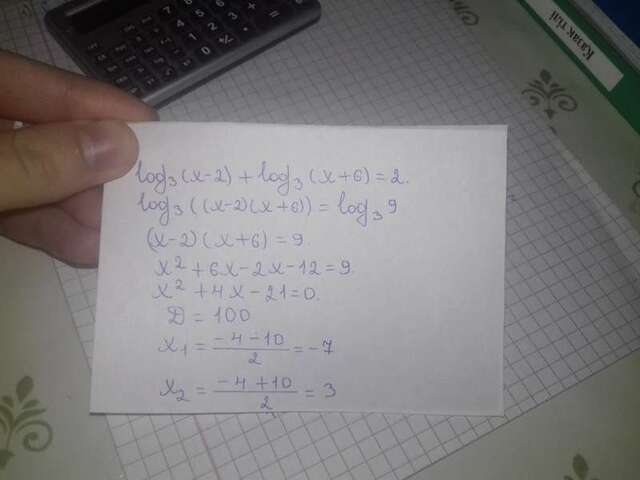 log₃(x-2) + log₃(x+6) = 2.
log₃((x-2)(x+6)) = log₃9
(x-2)(x+6) = 9.
x² + 6x - 2x - 12 = 9
x² + 4x - 21 = 0.
D = 100
x₁ = (-4-10)/2 = -7
x₂ = (-4+10)/2 = 3
Қазақ тілі